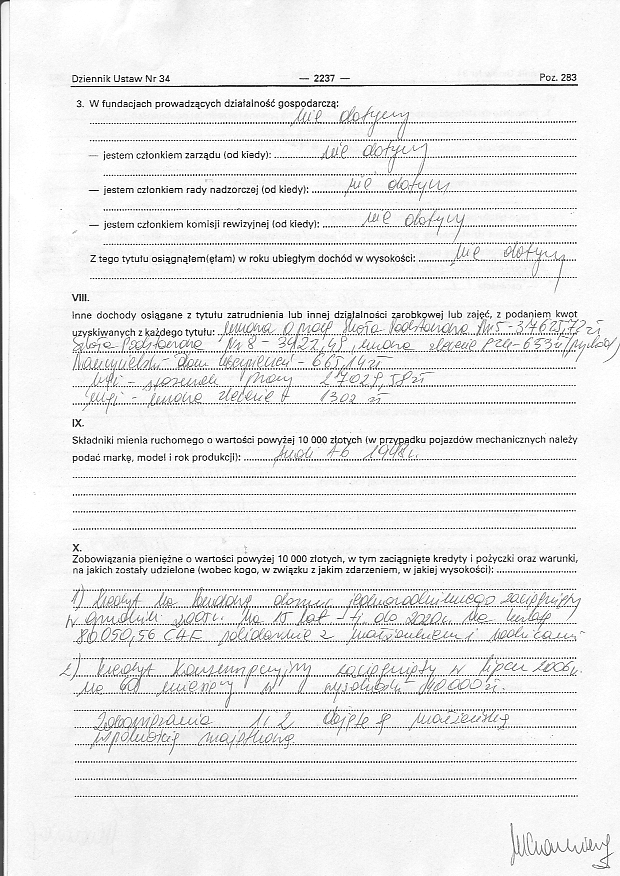 Dziennik Ustaw Nr 34 — 2237 — Poz. 283
3. W fundacjach prowadzących działalność gospodarczą:
nie dotyczy
— jestem członkiem zarządu (od kiedy): nie dotyczy
— jestem członkiem rady nadzorczej (od kiedy): nie dotyczy
— jestem członkiem komisji rewizyjnej (od kiedy): nie dotyczy
Z tego tytułu osiągnąłem(ęłam) w roku ubiegłym dochód w wysokości: nie dotyczy
VIII.
Inne dochody osiągane z tytułu zatrudnienia lub innej działalności zarobkowej lub zajęć, z podaniem kwot
uzyskiwanych z każdego tytułu: umowa o pracę Szkoła Podstawowa Nr 5 - 37625,72 zł
Szkoła Podstawowa Nr 8 - 3422,49, umowa zlecenie PZU - 653 zł
Nauczycielski dom - 665,14 zł
- stosunek pracy 27029,58 zł
- umowa zlecenie 1302 zł
IX.
Składniki mienia ruchomego o wartości powyżej 10 000 złotych (w przypadku pojazdów mechanicznych należy
podać markę, model i rok produkcji): Audi A6 1998 r.
X.
Zobowiązania pieniężne o wartości powyżej 10 000 złotych, w tym zaciągnięte kredyty i pożyczki oraz warunki,
na jakich zostały udzielone (wobec kogo, w związku z jakim zdarzeniem, w jakiej wysokości):
1) Kredyt na budowę domu jednorodzinnego zaciągnięty
w grudniu 2005 r. na 15 lat - tj. do 2020 r. na kwotę
80050,56 CHF solidarnie z małżonkiem i rodzicami
2) Kredyt konsumpcyjny zaciągnięty w lipcu 2006 r.
na 60 miesięcy w wysokości 40000 zł.
Zobowiązania 1 i 2 objęte są małżeńską
wspólnością majątkową